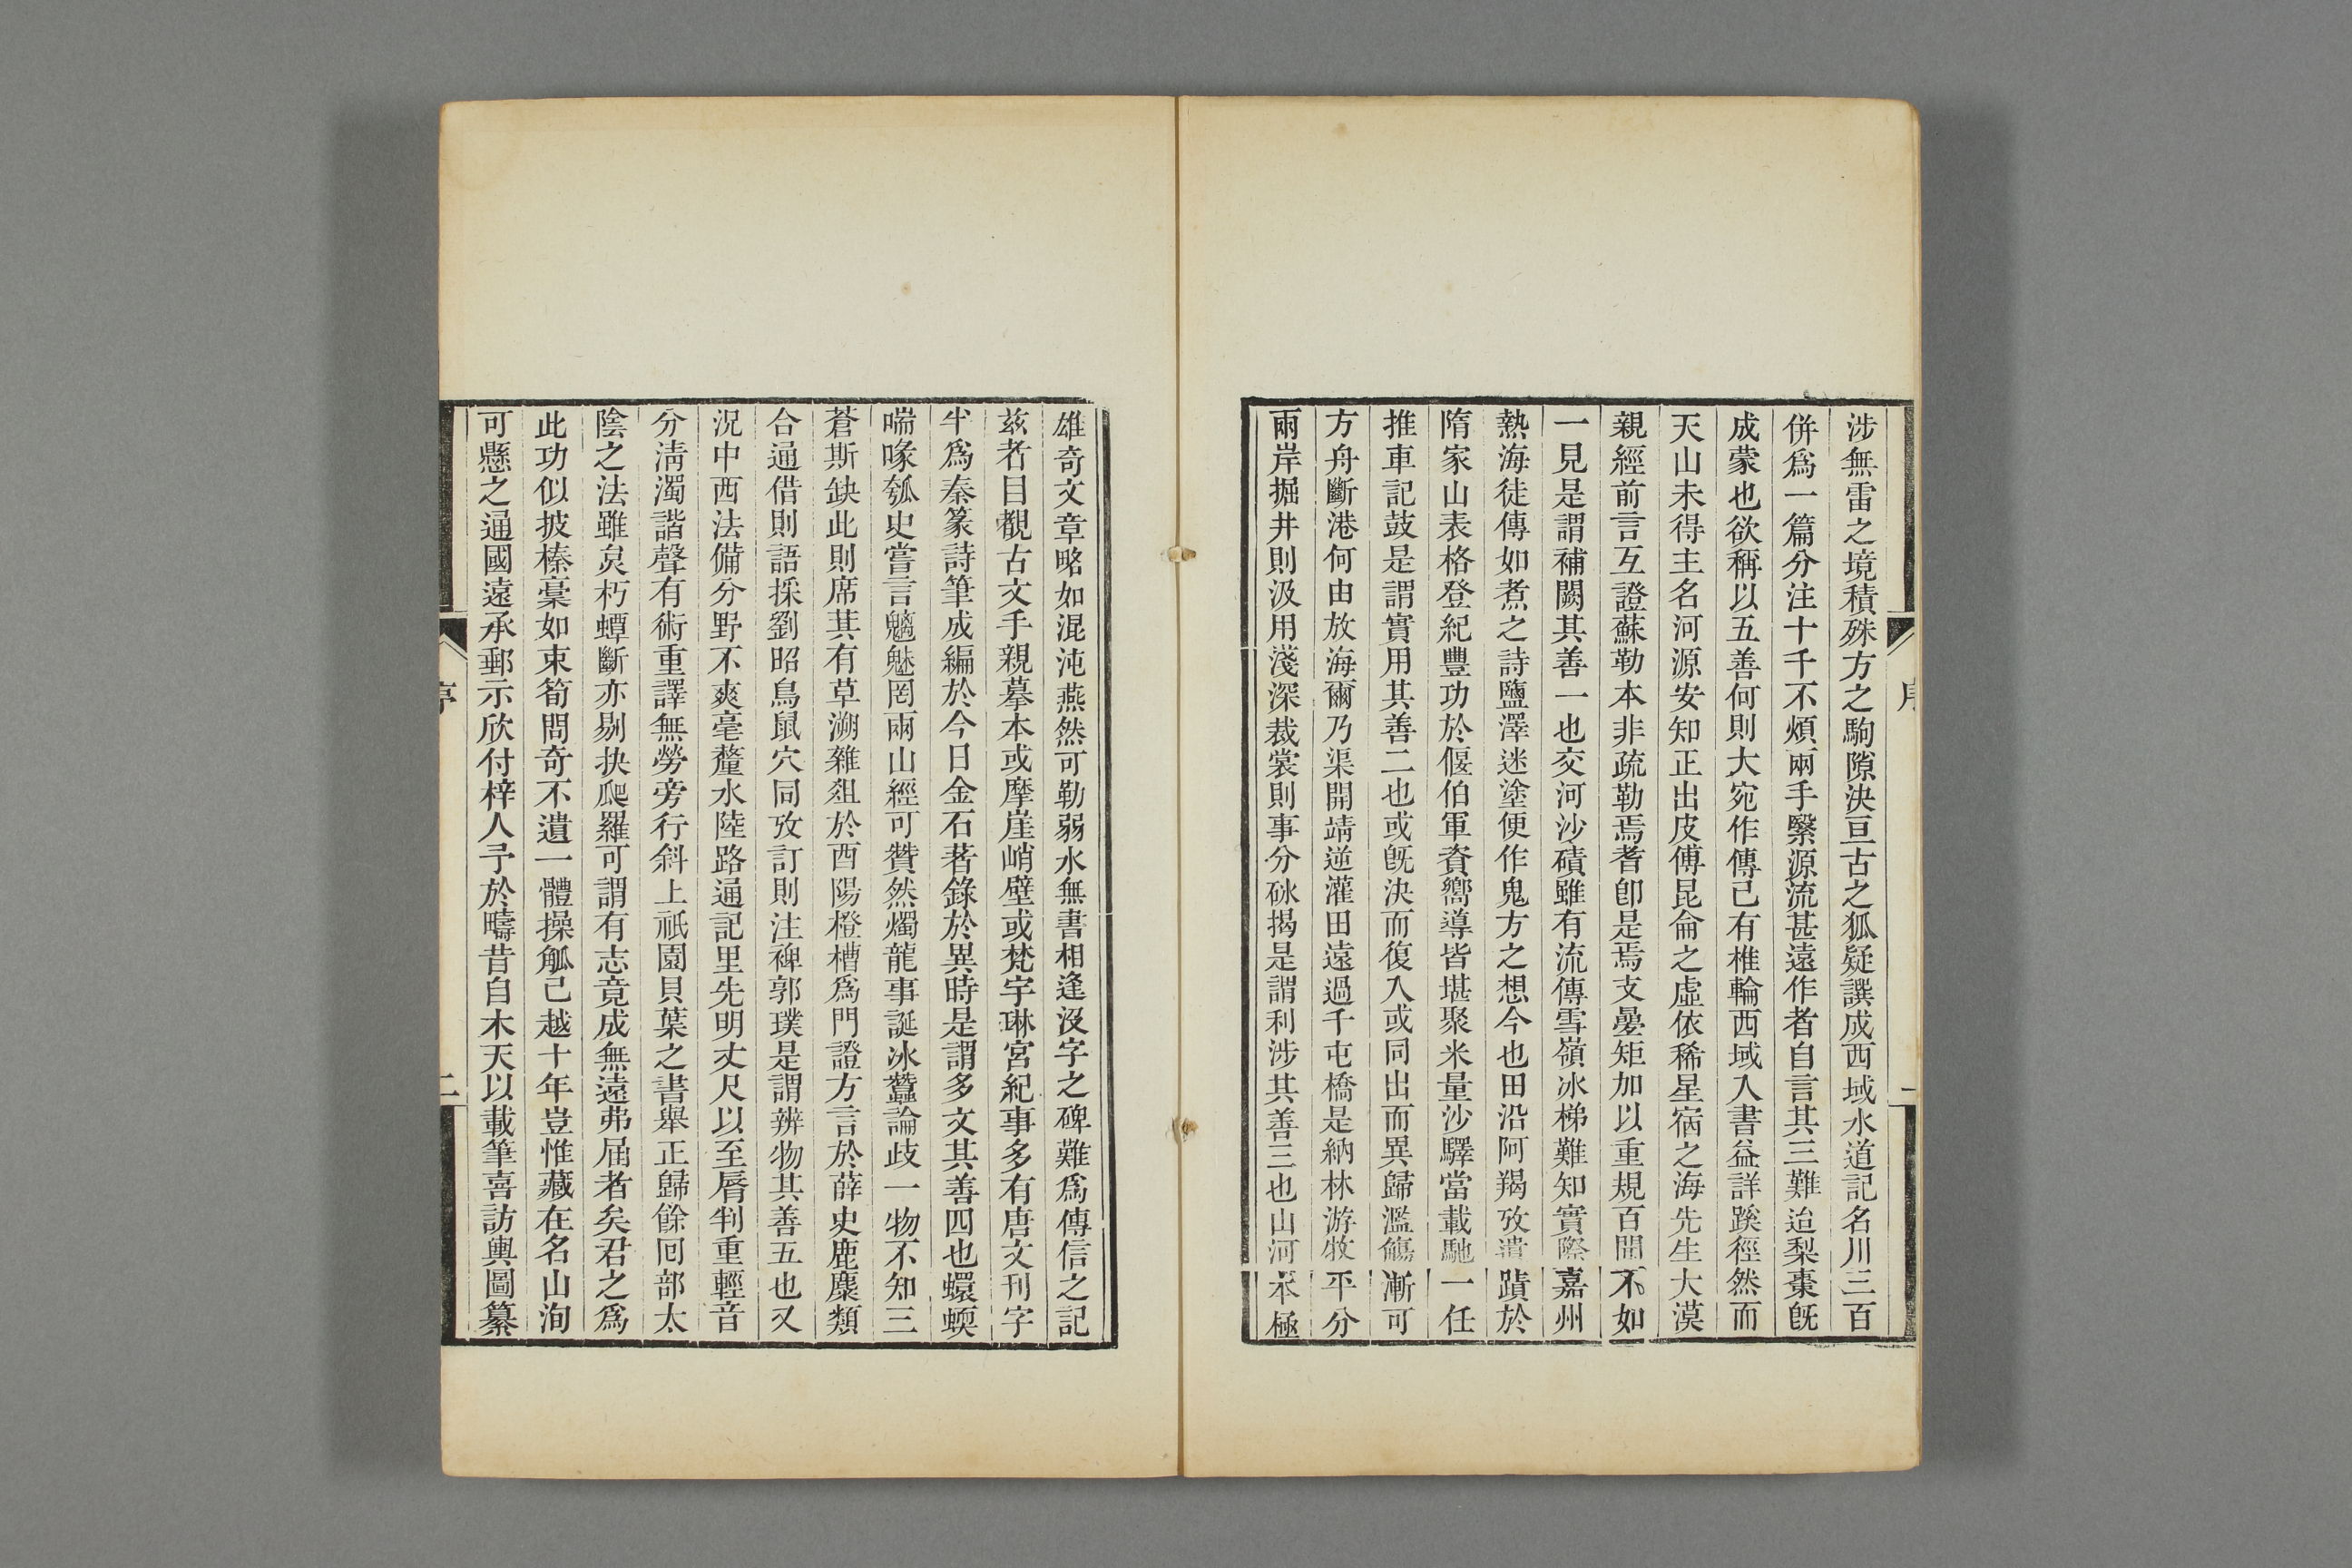 涉無雷之境積殊方之駒隙決亘古之狐疑譔成西域水道記名川三百
併爲一篇分注十千不煩兩手繄源流甚遠作者自言其三難迨梨棗旣
成蒙也欲稱以五善何則大宛作傳已有椎輪西域入書益詳蹊徑然而
天山未得主名河源安知正出皮傅昆侖之虛依稀星宿之海先生大漠
親經前言互證蘇勒本非疏勒焉耆卽是焉支㬪矩加以重規百聞不如
一見是謂補闕其善一也交河沙磧雖有流傳雪嶺冰梯難知實際嘉州
熱海徒傳如煮之詩鹽澤迷塗便作鬼方之想今也田沿阿羯攷遺蹟於
隋家山表格登紀豐功於偃伯軍資嚮導皆堪聚米量沙驛當載馳一任
推車記鼓是謂實用其善二也或旣決而復入或同出而異歸濫觴漸可
方舟斷港何由放海爾乃渠開靖逆灌田遠過千屯橋是納林游牧平分
兩岸掘井則汲用淺深裁裳則事分砅揭是謂利涉其善三也山河不極
序
一
雄奇文章略如混沌燕然可勒弱水無書相逢沒字之碑難爲傳信之記
茲者目覩古文手親摹本或摩崖峭壁或梵宇琳宮紀事多有唐文刊字
半爲秦篆詩筆成編於今日金石著錄於異時是謂多文其善四也蠉蝡
喘喙瓠史嘗言魑魅罔兩山經可贊然燭龍事誕冰蠶論歧一物不知三
蒼斯缺此則席萁有草溯雜俎於酉陽橙槽爲門證方言於薛史鹿麇類
合通借則語採劉昭鳥鼠穴同攷訂則注裨郭璞是謂辨物其善五也又
況中西法備分野不爽毫釐水陸路通記里先明丈尺以至脣判重輕音
分淸濁諧聲有術重譯無勞旁行斜上祇園貝葉之書舉正歸餘回部太
陰之法雖炱朽蟫斷亦剔抉爬羅可謂有志竟成無遠弗届者矣君之爲
此功似披榛稾如束筍問奇不遺一體操觚已越十年豈惟藏在名山洵
可懸之通國遠承郵示欣付梓人予於疇昔自木天以載筆喜訪輿圖纂
序
二